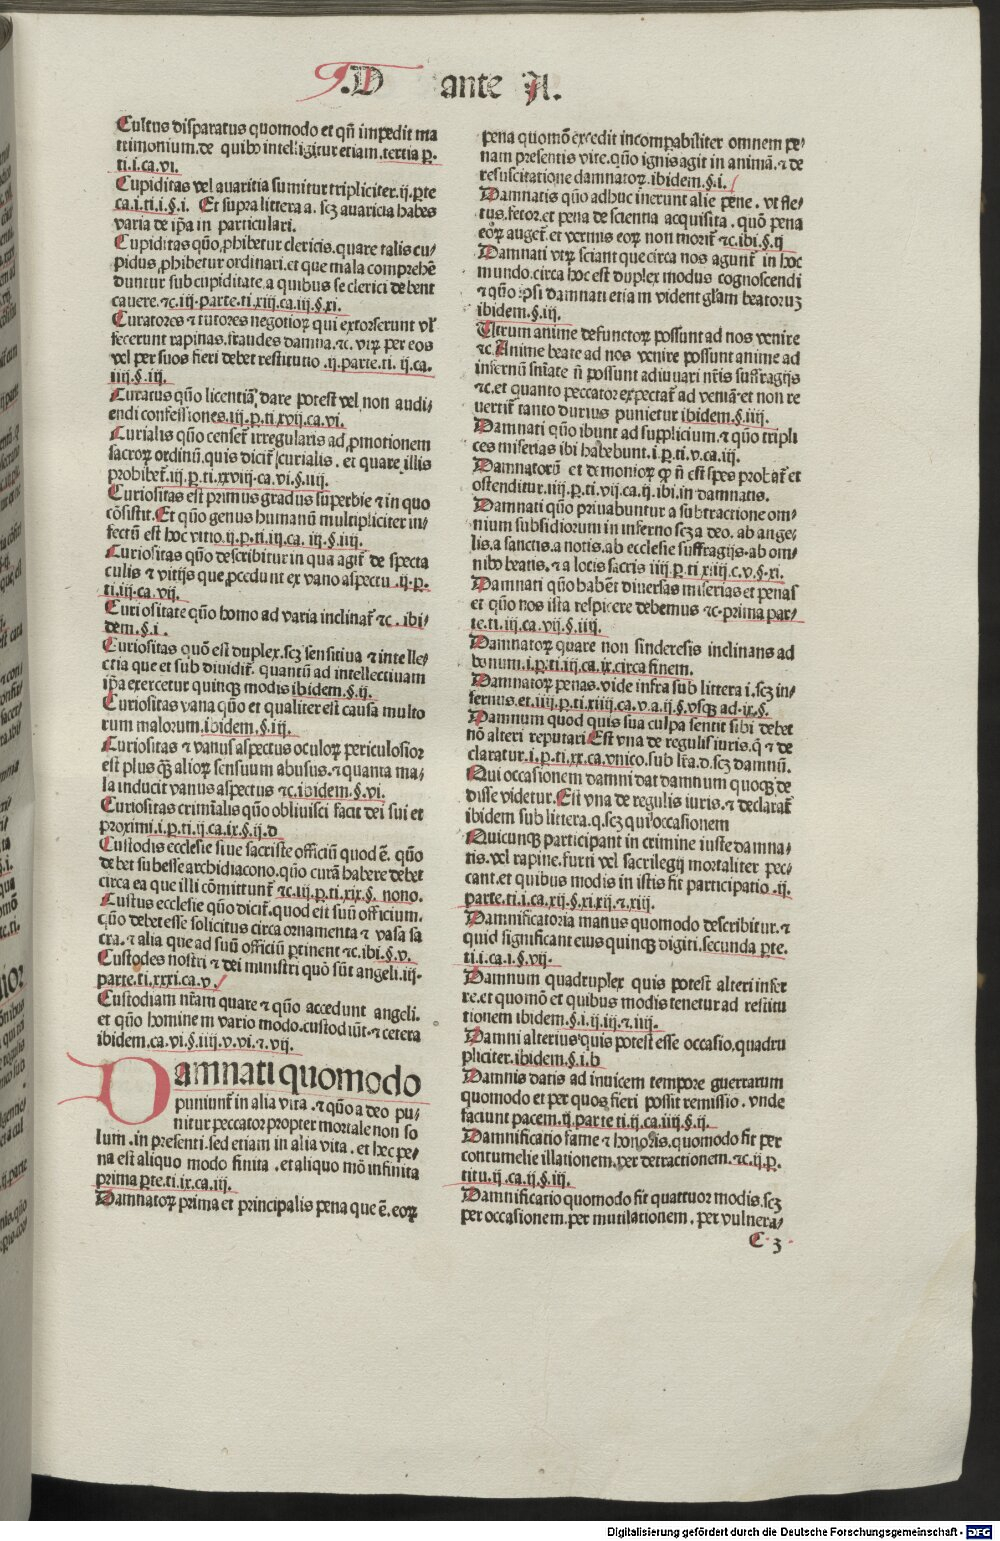 .D ante A.
Cultus disparatus quomodo et qñ impedit ma
trimonium.de quibo intelligitur etiam.tertia p̱.
ti.i.ca.vi.
Cupiditas vel avaritia sumitur tripliciter.ij.p̱te
ca.i.ti.i.§.i. Et supra littera a. scz avaricia habes
varia de ip̃a in particulari.
Cupiditas qũo ꝓhibetur clericis.quare talis cu/
pidus ꝓhibetur ordinari.et que mala comprehẽ
duntur sub cupiditate a quibus se clerici debent
cavere.⁊c.iij.parte.ti.xiij.ca.iij.§.xi.
Curatores ⁊ tutores negotioꝝ qui extorserunt vl̃
fecerunt rapinas.fraudes damna.⁊c. vtꝝ per eos
vel per suos fieri debet restitutio .ij.parte.ti. ij.ca.
iiij.§.iij.
Curatus qũo licentiã dare potest vel non audi/
endi confessiones.iij.p̱.ti.xvij.ca.vi.
Curialis qũo censet̃ irregularis ad ꝓmotionem
sacroꝝ ordinũ.quis dicit̃ curialis . et quare illis
prohibet̃.iij.p̱.ti.xxviij.ca.vi.§.iiij.
Curiositas est primus gradus superbie ⁊ in quo
cõsistit.Et qũo genus humanũ multipliciter in/
fectũ est hoc vitio.ij.p̱.ti.iij.ca. iij.§.iiij.
Curiositas qũo describitur in qua agit̃ de specta
culis ⁊ vitijs que ꝓcedunt ex vano aspectu .ij.p̱.
ti.iij.ca.vij.
Curiositate qũo homo ad varia inclinat̃ ⁊c . ibi/
dem.§.i .
Curiositas quõ est duplex.scz sensitiva ⁊ intelle/
ctia que et sub dividit̃. quantũ ad intellectivam
ip̃a exercetur quinqꝫ modis ibidem.§.ij.
Curiositas vana qũo et qualiter est causa multo
rum malorum.ibidem.§.iij.
Curiositas ⁊ vanus aspectus oculoꝝ periculosior
est plus qꝫ alioꝝ sensuum abusus.⁊ quanta ma/
la inducit vanus aspectus ⁊c.ibidem.§.vi.
Curiositas criminalis qũo oblivisci facit dei sui et
proximi.i.p̱.ti.ij.ca.ix.§.ij.d
Custodis ecclesie sive sacriste officiũ quod ẽ. qũo
debet subesse archidiacono.qũo curã habere debet
circa ea que illi cõmittunt̃ ⁊c.iij.p̱.ti.xix.§. nono.
Custus ecclesie qũo dicit̃.quod est suũ officium.
qũo debet esse solicitus circa ornamenta ⁊ vasa sa
cra.⁊ alia que ad suũ officiũ p̱tinent ⁊c.ibi.§.v.
Custodes nostri ⁊ dei ministri quõ sũt angeli.iij.
parte.ti.xxxi.ca.v.
Custodiam nr̃am quare ⁊ qũo accedunt angeli.
et qũo hominem vario modo.custodiũt.⁊ cetera
ibidem.ca.vi.§.iiij.v.vi.⁊.vij.
Damnati quomodo
puniunt̃ in alia vita .⁊ qũo a deo pu/
nitur peccator propter mortale non so
lum .in presenti.sed etiam in alia vita . et hec pe/
na est aliquo modo finita .et aliquo mõ infinita
prima p̱te.ti.ix.ca.iij.
Damnatoꝝ prima et principalis pena que ẽ. eoꝝ
pena quomõ excedit incomparabiliter omnem pe/
nam presentis vite.qũo ignis agit in animã.⁊ de
resuscitatione damnatoꝝ.ibidem.§.i.
Damnatis qũo adhuc inerunt alie pene . vt fle/
tus.fetor.et pena de scientia acquisita . quõ pena
eoꝝ auget̃.et vermis eoꝝ non morit̃ ⁊c.ibi.§.ij
Damnati vtꝝ sciant que circa nos agunt̃ in hoc
mundo.circa hoc est duplex modus cognoscendi
⁊ qũo ipsi damnati etiam vident gl̃am beatoruꝫ
ibidem.§.iij.
Utrum anime defunctoꝝ possunt ad nos venire
⁊c.Anime beate ad nos venire possunt anime ad
infernũ sñiate ñ possunt adiuvari nr̃is suffragijs
⁊c.et quanto peccator expectat̃ ad veniã et non re
vertit̃ tanto durius punietur ibidem.§.iiij.
Damnati qũo ibunt ad supplicium.⁊ qũo tripli
ces miserias ibi habebunt.i.p̱.ti.v.ca.iij.
Damnatorũ et demonioꝝ ꝙ ñ est spes probat̃ et
ostenditur.iiij.p̱.ti.vij.ca.ij.ibi.in damnatis.
Damnati qũo privabuntur a subtractione om/
nium subsidiorum in inferno scz a deo. ab ange/
lis.a sanctis.a notis.ab ecclesie suffragijs.ab om/
nibo beatis.⁊ a locis sacris iiij.p̱.ti.xiiij.c.v.§.xi.
Damnati qũo habẽt diversas miserias et penas
et qũo nos ista respicere debemus ⁊c.prima par/
te.ti.iij.ca.vij.§.iiij.
Damnatoꝝ quare non sinderesis inclinans ad
bonum.i.p̱.ti.iij.ca.ix.circa finem.
Damnatoꝝ penas.vide infra sub littera i.scz in/
fernus.et.iiij.p̱.ti.xiiij.ca.v.a.ij.§.vsqꝫ ad.ix.§.
Damnum quod quis sua culpa sentit sibi debet
nõ alteri reputari.Est vna de regulis iuris.q̃ ⁊ de
claratur.i.p̱.ti.xx.ca.vnico.sub lr̃a.d.scz damnũ.
Qui occasionem damni dat damnum quoqꝫ de
disse videtur.Est vna de regulis iuris.⁊ declarat̃
ibidem sub littera.q.scz qui occasionem
Quicunqꝫ participant in crimine iuste damna/
tis.vel rapine.furti vel sacrilegij mortaliter pec/
cant.et quibus modis in istis fit participatio .ij.
parte.ti.i.ca.xij.§.xi.xij.⁊.xiij.
Damnificatoria manus quomodo describitur.⁊
quid significant eius quinqꝫ digiti.secunda p̱te.
ti.i.ca.i.§.vij.
Damnum quadruplex quis potest alteri infer
re.et quomõ et quibus modis tenetur ad restitu
tionem ibidem.§.i.ij.iij.⁊.iiij.
Damni alterius quis potest esse occasio.quadru
pliciter.ibidem.§.i.b
Damnis datis ad invicem tempore guerrarum
quomodo et per quos fieri possit remissio . vnde
faciunt pacem.ij.parte ti.ij.ca.iiij.§.ij.
Damnificatio fame ⁊ honoris.quomodo fit per
contumelie illationem.per detractionem.⁊c.ij.p̱.
titu.ij.ca.ij.§.iij.
Damnificatio quomodo fit quattuor modis.scz
per occasionem.per mutilationem . per vulnera/
C 3
Digitalisierung gefördert durch die Deutsche Forschungsgemeinschaft - DFG